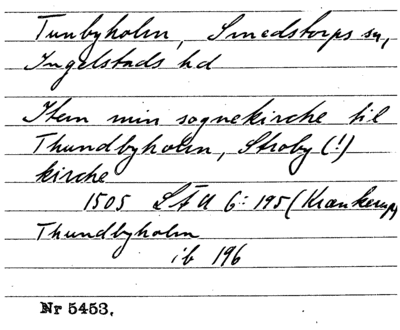 Tunbyholm, Smedstorps sn,
Ingelstads hd
Item min sognekirche til
Thundbyholm, Stroby (!)
kirche
1505 LÄU 6: 195 (Krankerup)
Thundbyholm
ib 196
Nr 5453.